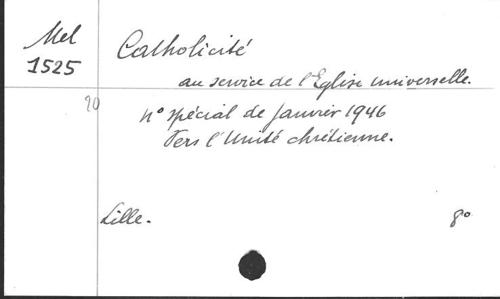 Mel
1525
Catholicité
au service de l'Eglise universelle.
20
n° spécial de Janvier 1946
Vers l'Unité chrétienne.
Lille.
8°